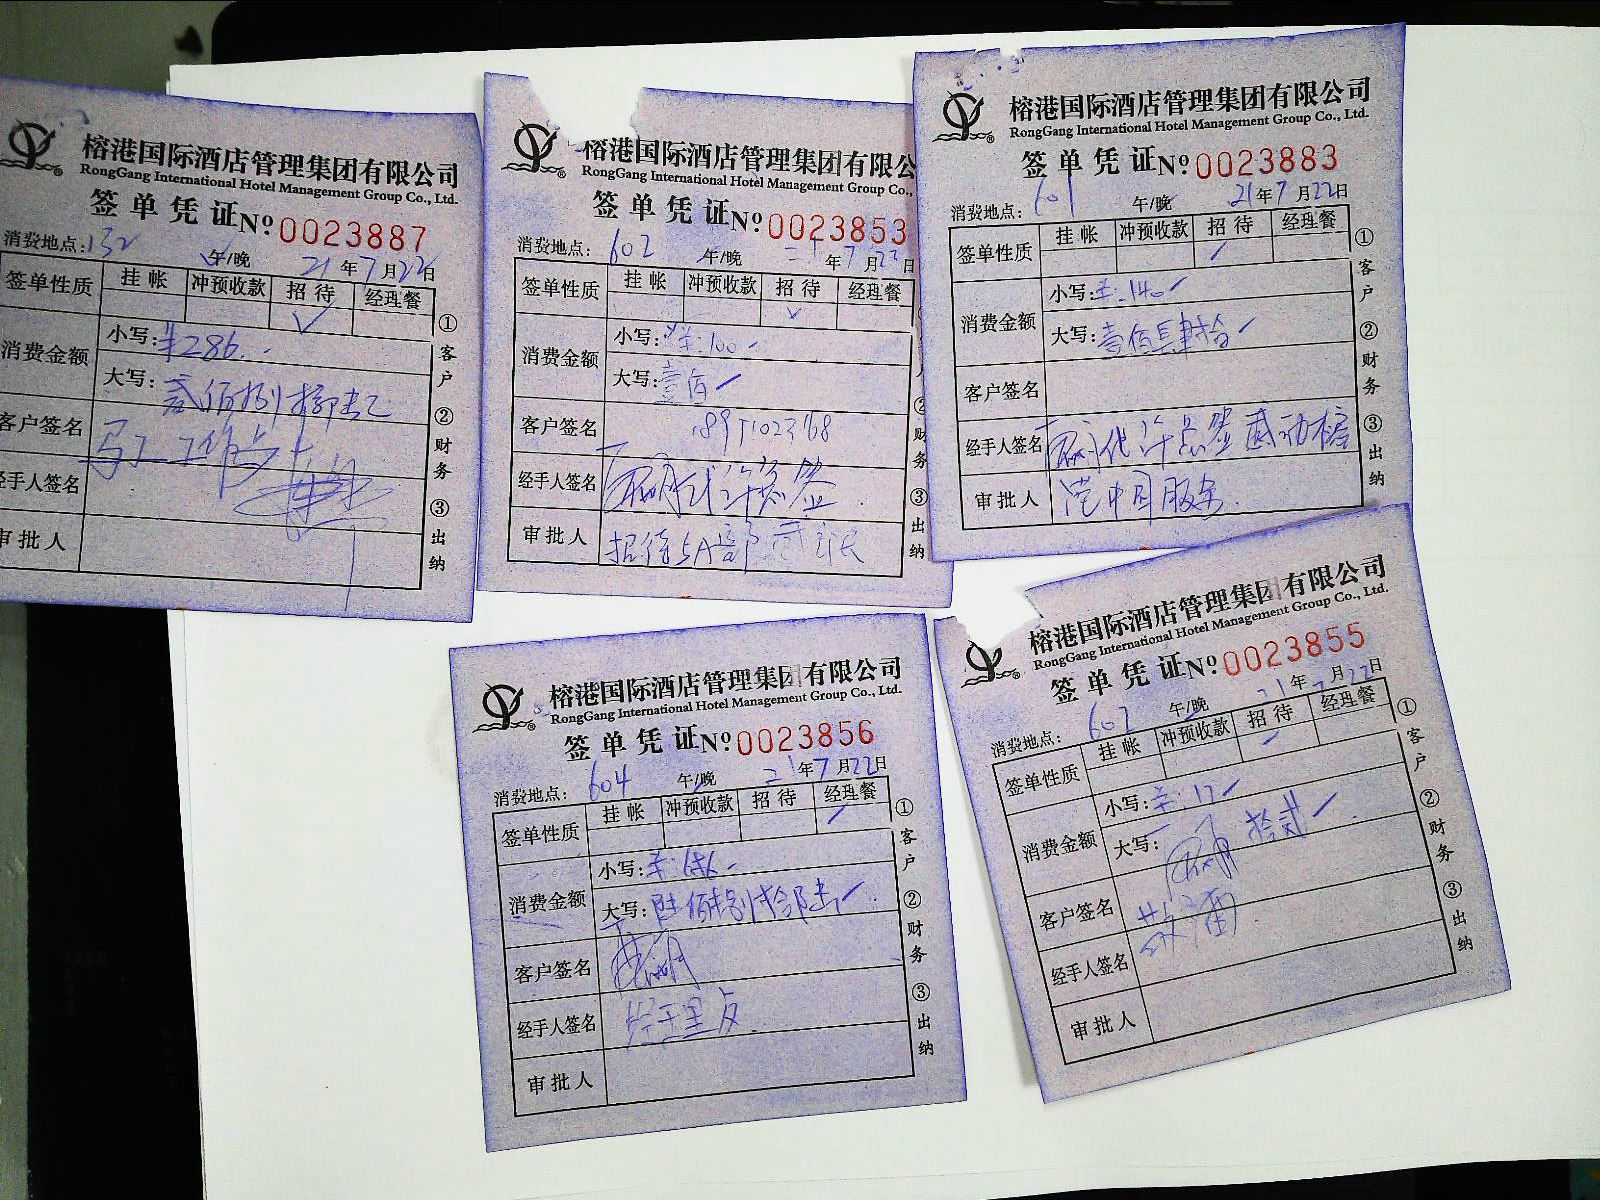 榕港国际酒店管理集团有限公司
RongGang International Hotel Management Group Co., Ltd.
签单凭证 Nº 0023887
消费地点: 132 午/晚 21年7月22日
签单性质 挂帐 冲预收款 招待 经理餐
✓
消费金额 小写: ¥286.
大写: 贰佰捌拾陆
客户签名
经手人签名
审批人
①客户 ②财务 ③出纳
榕港国际酒店管理集团有限公
RongGang International Hotel Management Group Co.,
签单凭证 Nº 0023853
消费地点: 602 午/晚 21年7月22日
签单性质 挂帐 冲预收款 招待 经理餐
✓
消费金额 小写: 100
大写: 壹佰
客户签名
经手人签名 代许总签
审批人 招待
② 财务 ③出纳
榕港国际酒店管理集团有限公司
RongGang International Hotel Management Group Co., Ltd.
签单凭证 Nº 0023883
消费地点: 601 午/晚 21年7月22日
签单性质 挂帐 冲预收款 招待 经理餐
✓
消费金额 小写: 140
大写: 壹佰肆拾
客户签名
经手人签名 代许总签
审批人
①客户 ②财务 ③出纳
榕港国际酒店管理集团有限公司
RongGang International Hotel Management Group Co., Ltd.
签单凭证 Nº 0023856
消费地点: 604 午/晚 21年7月22日
签单性质 挂帐 冲预收款 招待 经理餐
✓
消费金额 小写: 686
大写: 陆佰捌拾陆
客户签名
经手人签名
审批人
①客户 ②财务 ③出纳
榕港国际酒店管理集团有限公司
RongGang International Hotel Management Group Co., Ltd.
签单凭证 Nº 0023855
消费地点: 602 午/晚 21年7月22日
签单性质 挂帐 冲预收款 招待 经理餐
✓
消费金额 小写: 12
大写: 拾贰
客户签名
经手人签名
审批人
①客户 ②财务 ③出纳